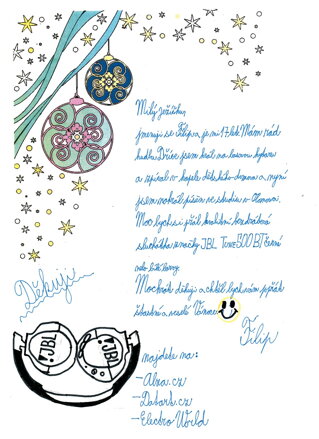 Milý Ježíšku,
jmenuji se Filip a je mi 17 let. Mám rád
hudbu. Dříve jsem hrál na basovou kytaru
a zpíval v kapele dětského domova a nyní
jsem nahrál píseň ve studiu v
Moc bych si přál kvalitní bezdrátová
sluchátka značky JBL Tune 500 BT černé
nebo bílé barvy.
Mockrát děkuji a chtěl bych vám popřát
šťastné a veselé Vánoce
Filip
Děkuji
JBL JBL
najdete na:
-Alza.cz
-Datart.cz
-Electro World